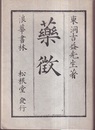 東洞吉益先生著
藥徴
浪華書林 松根堂發行